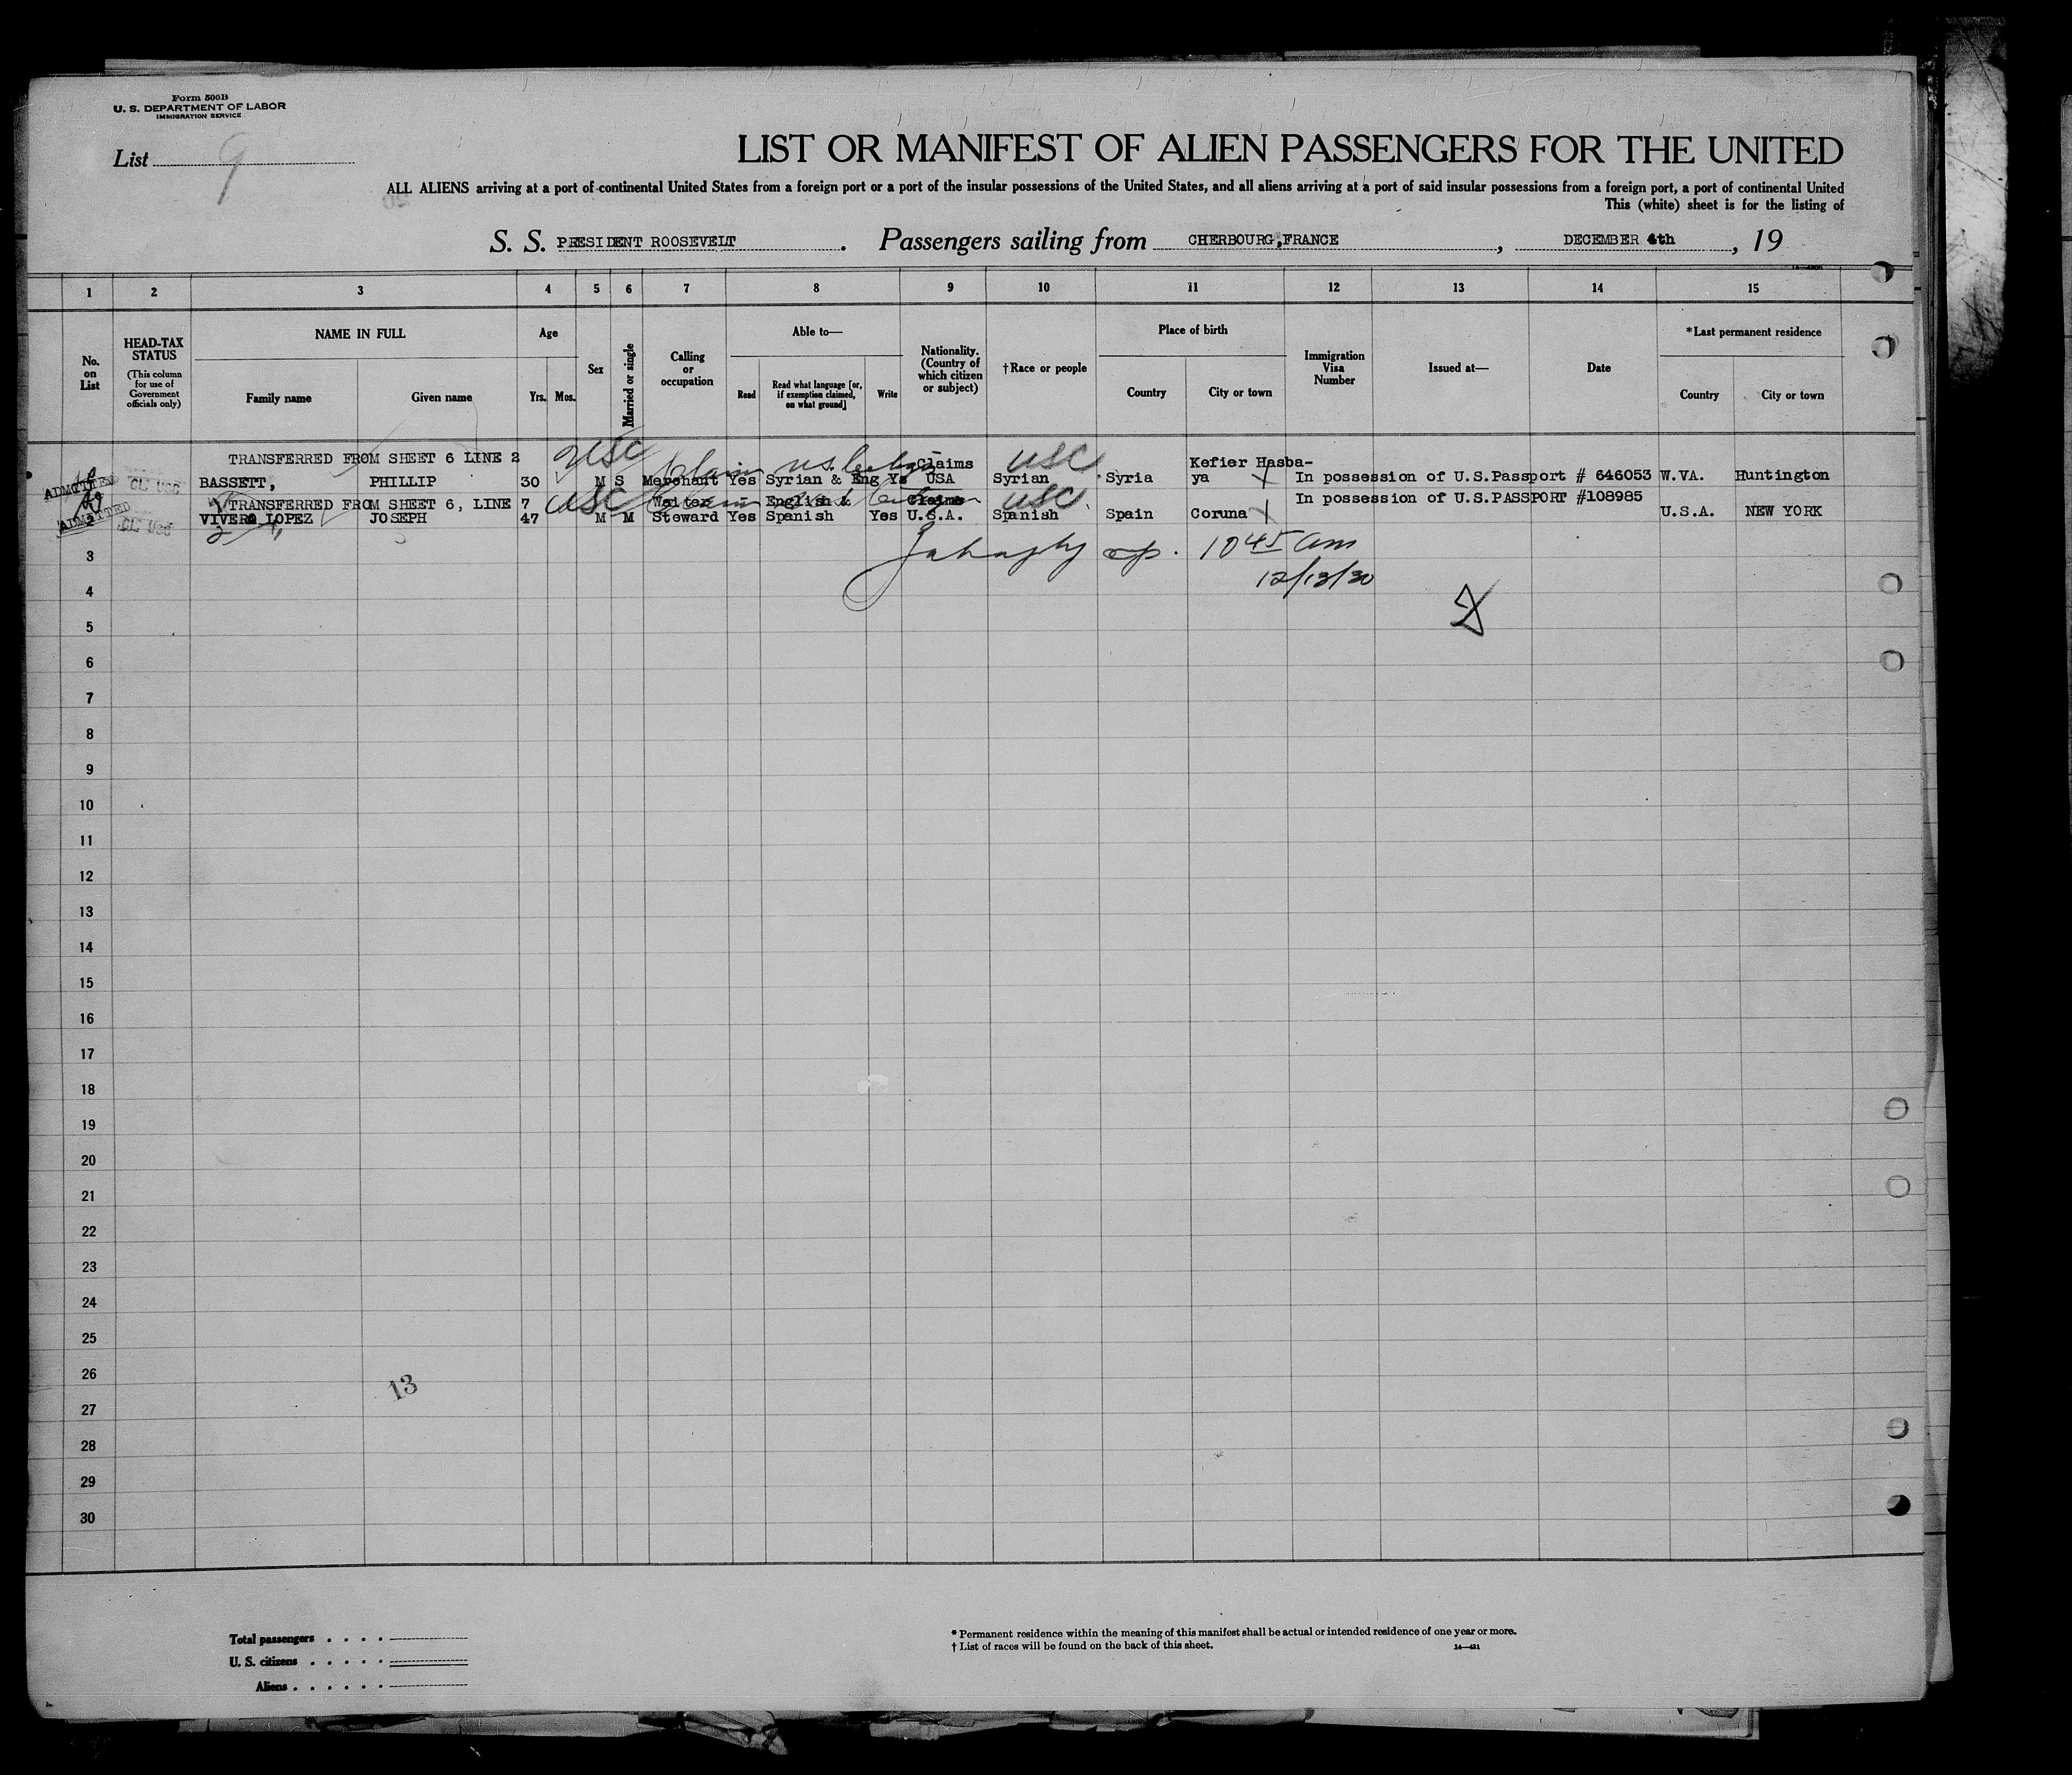 Form 500B
U. S. DEPARTMENT OF LABOR
IMMIGRATION SERVICE
List 9
LIST OR MANIFEST OF ALIEN PASSENGERS FOR THE UNITED
ALL ALIENS arriving at a port of continental United States from a foreign port or a port of the insular possessions of the United States, and all aliens arriving at a port of said insular possessions from a foreign port, a port of continental United
This (white) sheet is for the listing of
S. S. PRESIDENT ROOSEVELT. Passengers sailing from CHERBOURG, FRANCE, DECEMBER 4th, 19
1 2 3 4 5 6 7 8 9 10 11 12 13 14 15
No. on List
HEAD-TAX STATUS (This column for use of Government officials only)
NAME IN FULL
Family name Given name
Age
Yrs. Mos.
Sex
Married or single
Calling or occupation
Able to—
Read Read what language [or, if exemption claimed, on what ground] Write
Nationality. (Country of which citizen or subject)
†Race or people
Place of birth
Country City or town
Immigration Visa Number
Issued at—
Date
*Last permanent residence
Country City or town
TRANSFERRED FROM SHEET 6 LINE 2 USC Claims USC Kefier Hasba-
ADMITTED CL USC BASSETT, PHILLIP 30 M S Merchant Yes Syrian & Eng Ys USA Syrian Syria ya In possession of U.S.Passport # 646053 W.VA. Huntington
TRANSFERRED FROM SHEET 6, LINE 7 USC Waiter English & Claims USC In possession of U.S.PASSPORT #108985
ADMITTED 2 CL USC VIVERO LOPEZ JOSEPH 47 M M Steward Yes Spanish Yes U.S.A. Spanish Spain Coruna U.S.A. NEW YORK
10 45 am
12/13/30
3
4
5
6
7
8
9
10
11
12
13
14
15
16
17
18
19
20
21
22
23
24
25
26
13
27
28
29
30
Total passengers
U. S. citizens
Aliens
* Permanent residence within the meaning of this manifest shall be actual or intended residence of one year or more.
† List of races will be found on the back of this sheet.